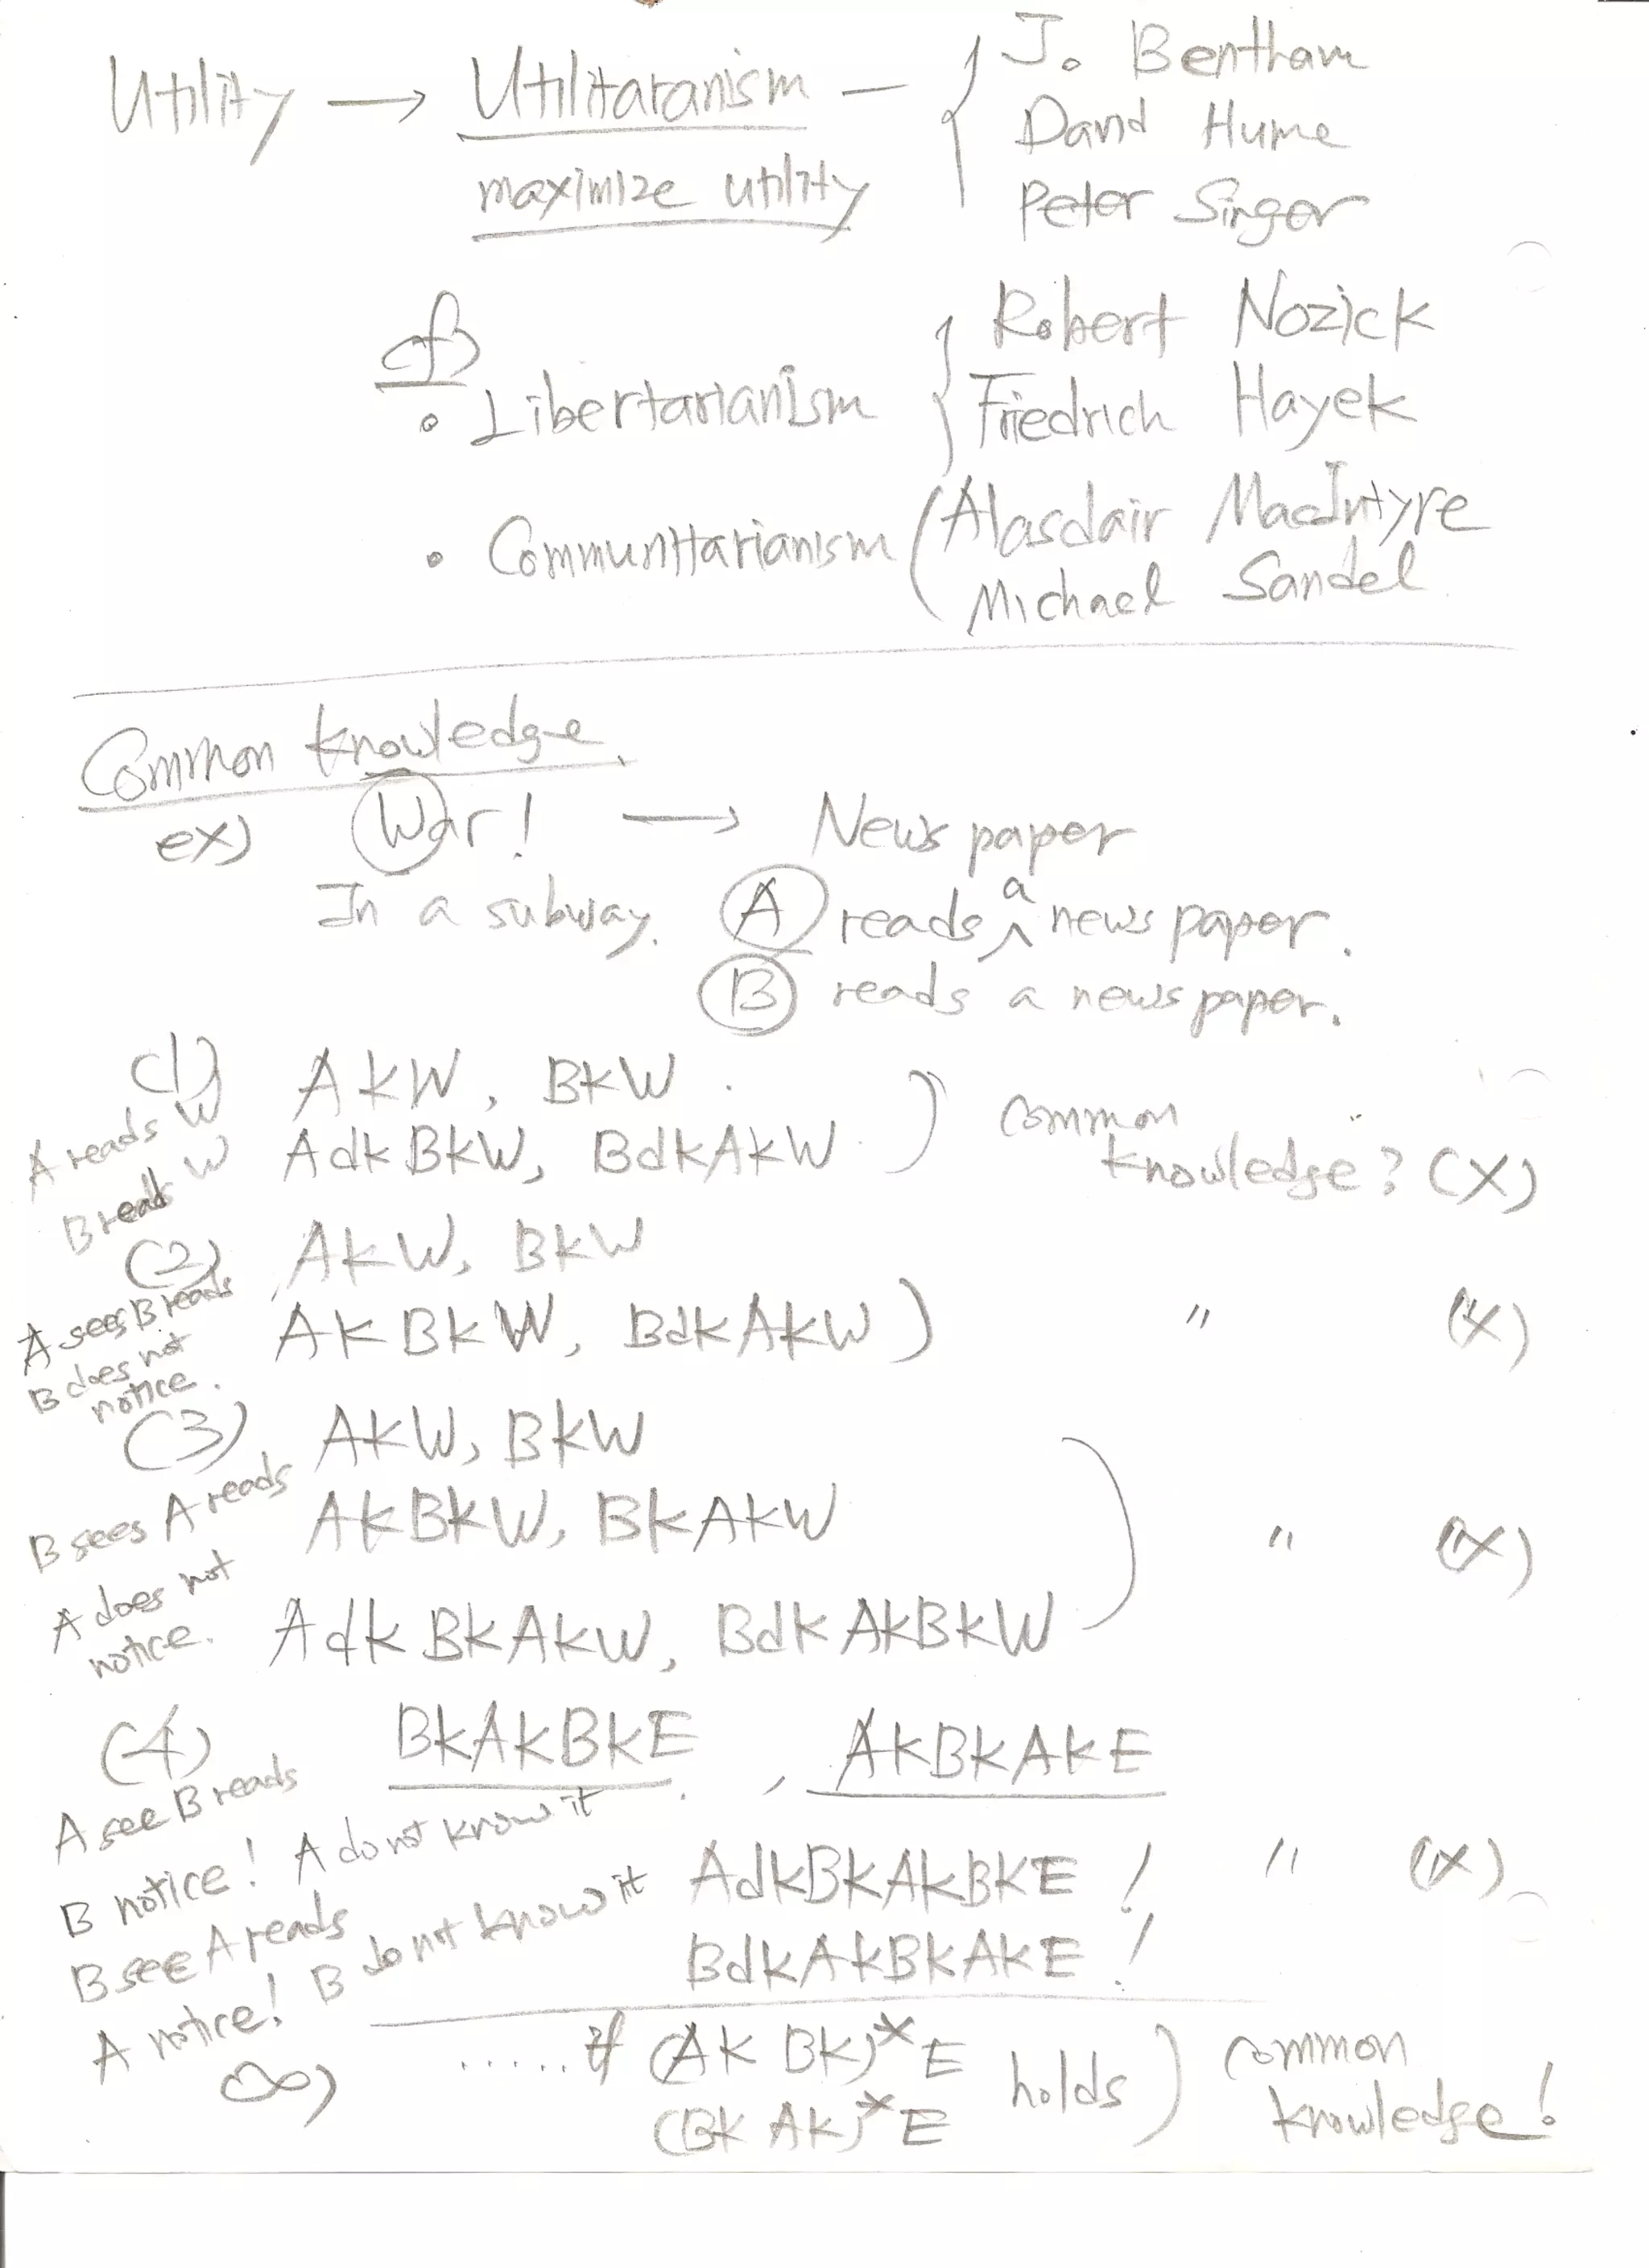 Utility → Utilitaranism — { J. Bentham
David Hume
maximize utility
Peter Singer
cf)
Robert Nozick
• Libertarianism { Friedrich Hayek
• Communitarianism ( Alasdair MacIntyre
Michael Sandel
Common knowledge.
ex) War! → News paper
In a subway. A reads a news paper.
B reads a news paper.
(1) AkW, BkW.
A reads W
B reads W
AdkBkW, BdkAkW.
) common
knowledge? (X)
(2) AkW, BkW
A sees B reads
B does not
notice.
AkBkW, BdkAkW ) " (X)
(3) AkW, BkW
B sees A reads
A does not
notice.
AkBkW, BkAkW
) " (X)
AdkBkAkW, BdkAkBkW
(4) BkAkBkE, AkBkAkE
A see B reads
B notice! A do not know it
B see A reads
A notice! B do not know it
AdkBkAkBkE! " (X)
BdkAkBkAkE!
∞) ...... if (Ak Bk)*E
(Bk Ak)*E
holds ) common
knowledge!